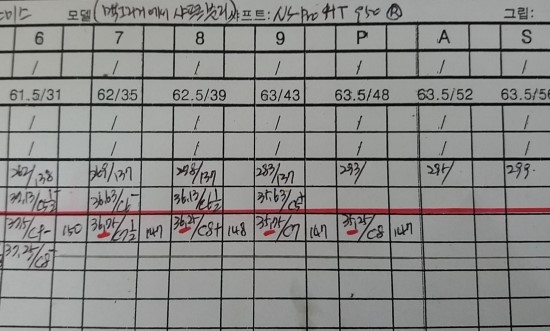 모델( 샤프트: N.S. Pro HT 950 Ⓡ 그립:
6 7 8 9 P A S
/ / / / / / /
61.5/31 62/35 62.5/39 63/43 63.5/48 63.5/52 63.5/56
/ / / / / / /
/ / / / / / /
262/138 269/137 278/137 283/137 293/ 295/ 299.
37.13/C5½ 36.63/C6- 36.13/C5½ 35.63/C5+
37.5/C9- 150 36.75/C7½ 147 36.25/C8+ 148 35.75/C7 147 35.25/C8 147
37.25/C8-